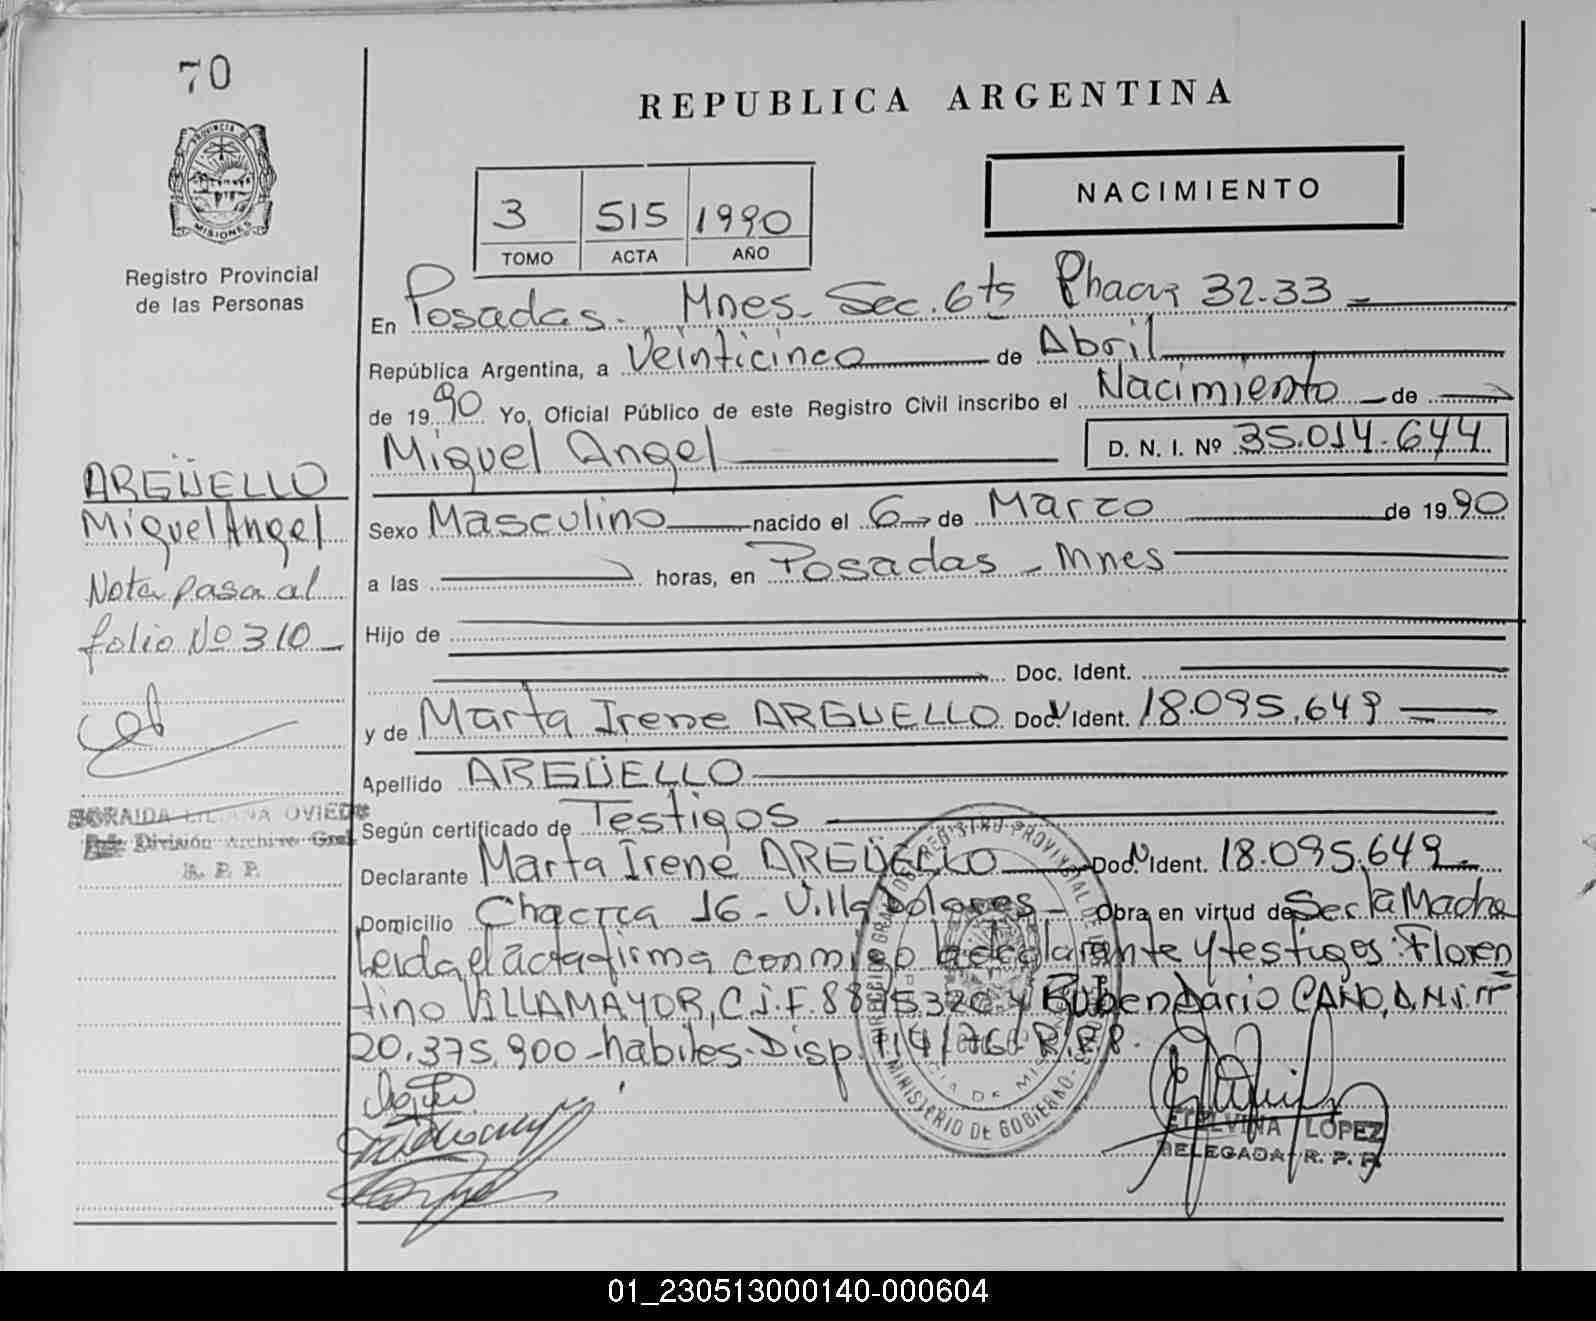 70
REPUBLICA ARGENTINA
PROVINCIA DE
MISIONES
Registro Provincial
de las Personas
3 515 1990
TOMO ACTA AÑO
NACIMIENTO
En Posadas. Mnes. Sec. 6ts 32-33
República Argentina, a Veinticinco de Abril
de 1990 Yo, Oficial Público de este Registro Civil inscribo el Nacimiento de
Miguel Angel D. N. I. Nº 35.014.644
ARGÜELLO
Miguel Angel
Nota pasa al
folio Nº 310
Sexo Masculino nacido el 6 de Marzo de 1990
a las horas, en Posadas - Mnes
Hijo de
Doc. Ident.
y de Marta Irene ARGUELLO Doc. Ident. 18.095.649
Apellido ARGÜELLO
SORAIDA LILIANA OVIEDO
División Archivo Gral
R. P. P.
Según certificado de Testigos
Declarante Marta Irene ARGÜELLO Doc. Ident. 18.095.649
Domicilio Chacra 16 - Villa Dolores - Obra en virtud de Ser la Madre
Leida el acta firma conmigo la declarante y testigos: Floren
tino VILLAMAYOR, C.I.F. y Ruben Dario CAÑO, D.N.I. nº
20.375.900 - habiles - Disp. R.P.P.
DIRECCION GRAL DEL REGISTRO PROVINCIAL DE
MINISTERIO DE GOBIERNO
ETELVINA LOPEZ
DELEGADA R. P. P.
01_230513000140-000604